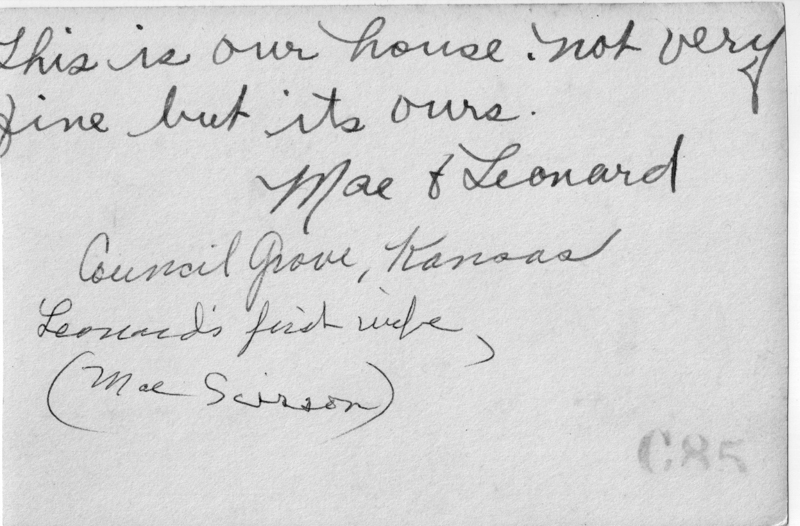 This is our house. not very
fine but its ours.
Mae & Leonard
Council Grove, Kansas
Leonard's first wife,
(Mae Scirson)
C85